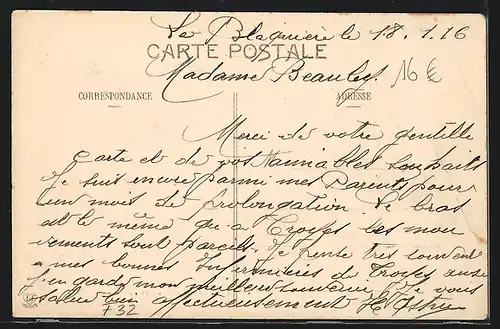 La Blaquière le 18.1.16
CARTE POSTALE
Madame
16 €
CORRESPONDANCE
ADRESSE
Merci de votre gentille
carte et de vos aimables souhaits
Je suis encore parmi mes Parents pour
un mois de prolongation. Le bras
est le même qu'a Troyes les mou
vements sont pareils. Je pense très souvent
a mes bonnes Infirmières de Troyes aussi
j'en garde mon meilleur souvenir Je vous
salue bien affectueusement
732